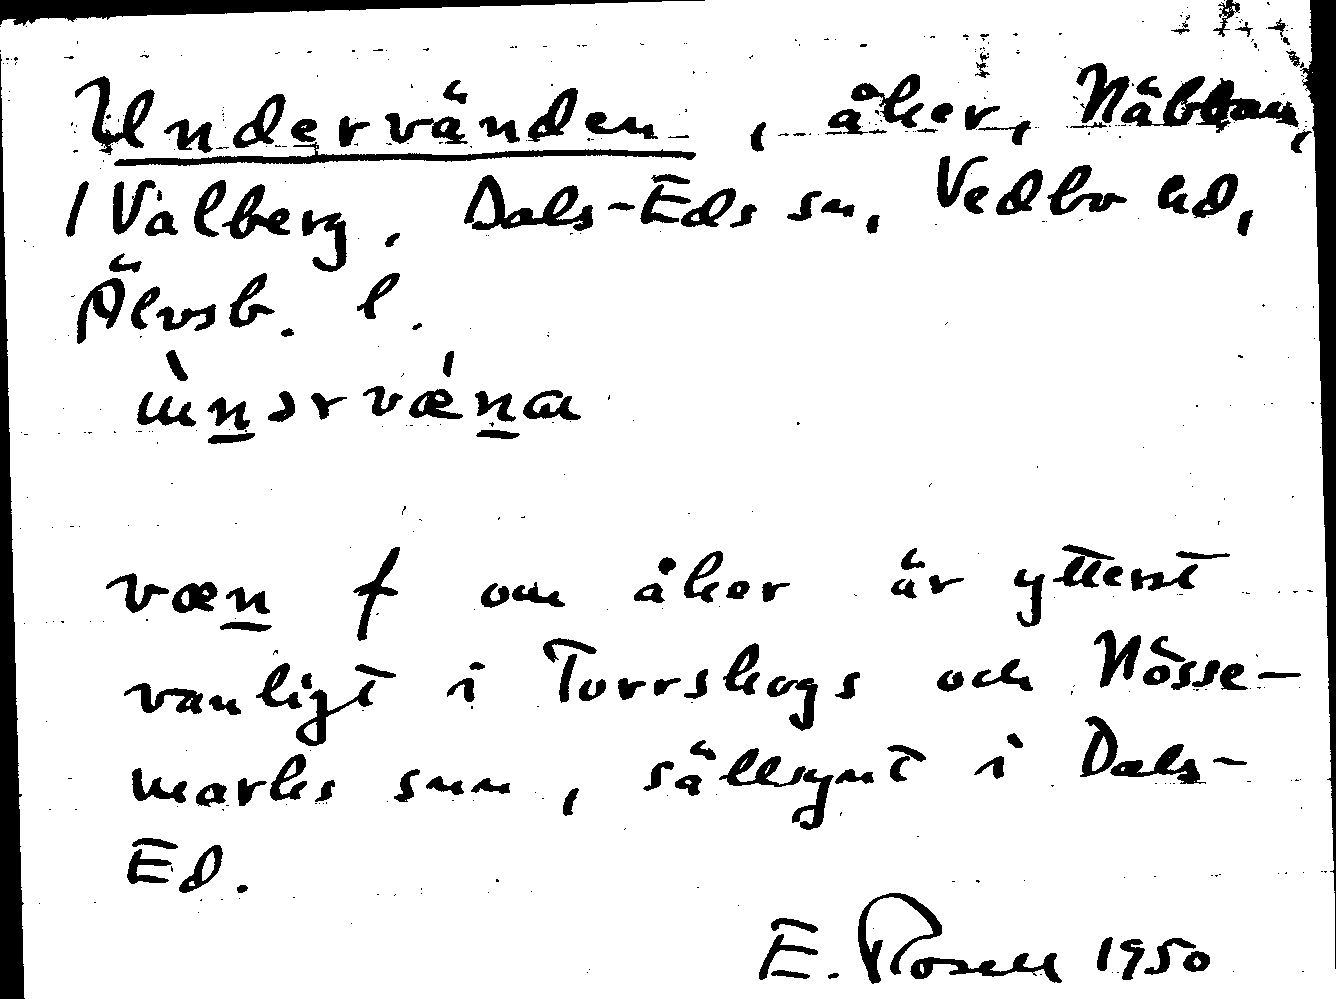 Undervänden, åker, Näbban,
1 Valberg, Dals-Eds sn, Vedbo hd,
Älvsb. l.
ùn̲ərvǽn̲a
væn̲ f om åker är ytterst
vanligt i Torrskogs och Nösse-
marks snn, sällsynt i Dals-
Ed.
E. Rosell 1950